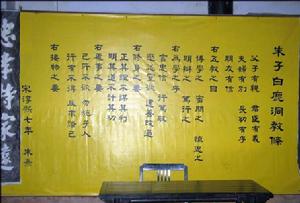 朱子白鹿洞教條
父子有親 君臣有義
夫婦有別 長幼有序
朋友有信
右五教之目
博學之 審問之 慎思之
明辨之 篤行之
右為學之序
言忠信 行篤敬
懲忿窒慾 遷善改過
右修身之要
正其誼不謀其利
明其道不計其功
右處事之要
己所不欲 勿施於人
行有不得 反求諸己
右接物之要
宋淳熙七年 朱熹
家遠